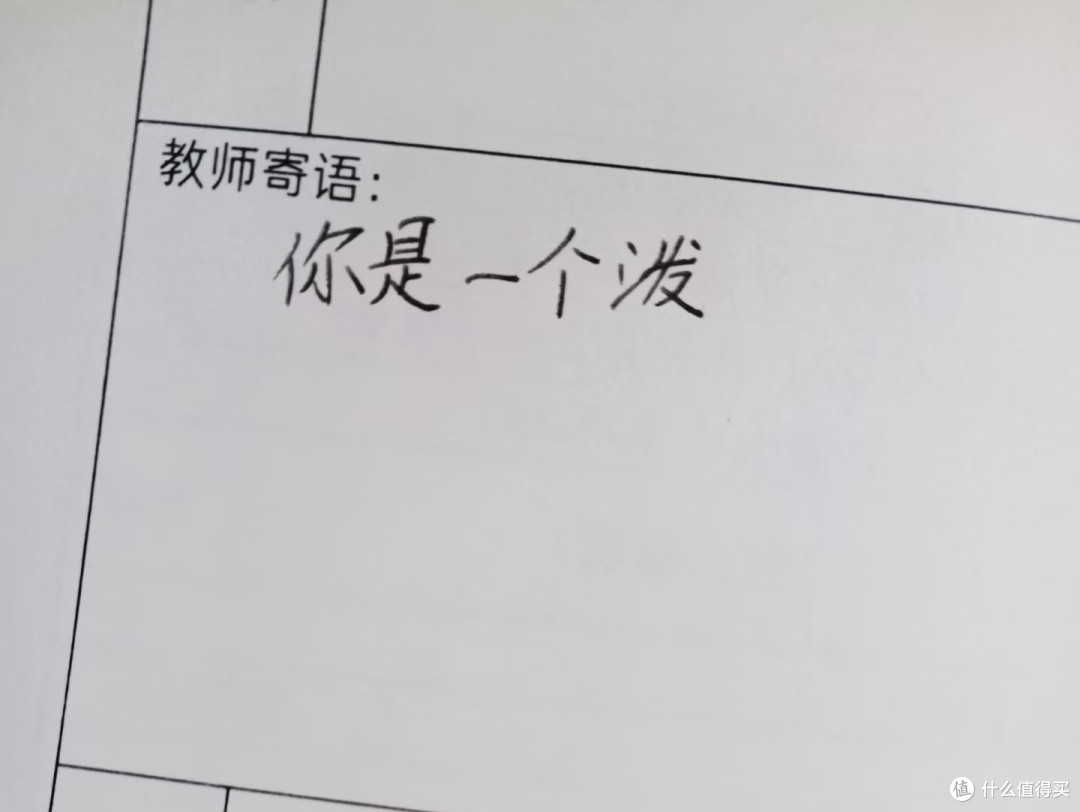 教师寄语:
你是一个泼
值 什么值得买